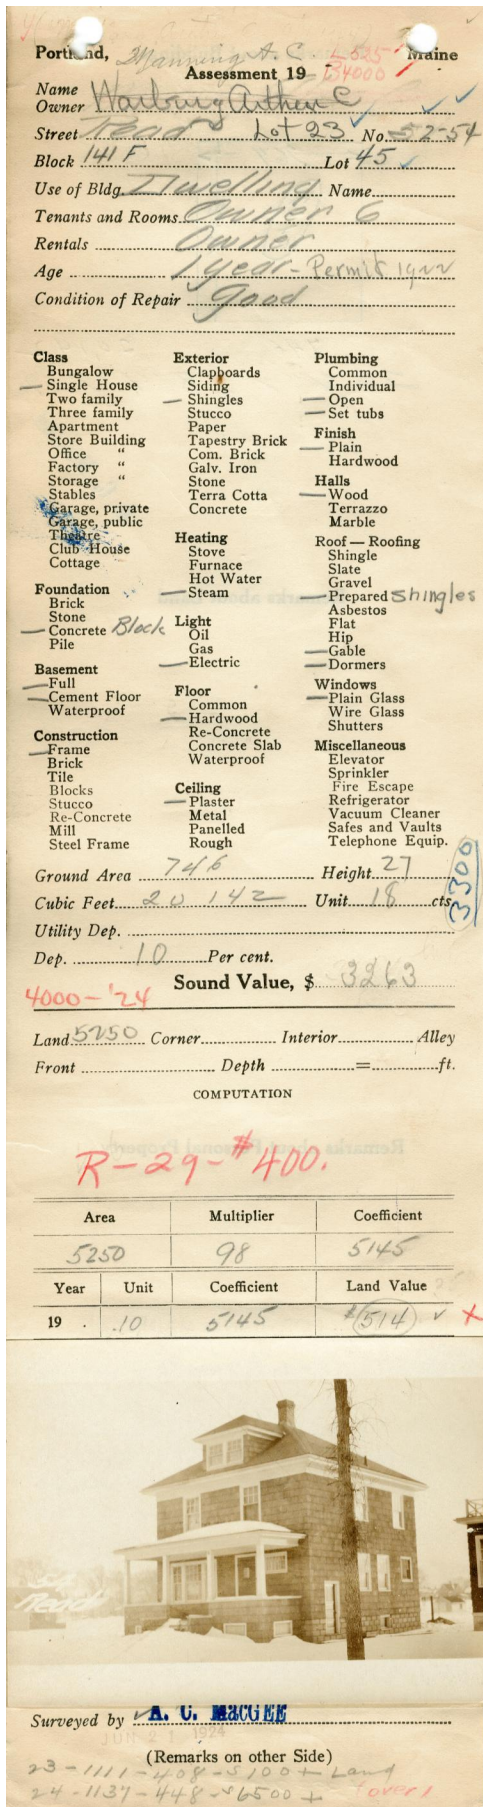 Portland, Manning A. C. L 525 Maine
Assessment 19 B 4000
Name
Owner Arthur C
Street Read Lot 23 No. 52-54
Block 141 F Lot 45
Use of Bldg. Dwelling Name
Tenants and Rooms Owner 6
Rentals Owner
Age 1 year - Permit 1922
Condition of Repair Good
Class
Bungalow
Single House
Two family
Three family
Apartment
Store Building
Office "
Factory "
Storage "
Stables
Garage, private
Garage, public
Theatre
Club House
Cottage
Foundation
Brick
Stone
Concrete Block
Pile
Basement
Full
Cement Floor
Waterproof
Construction
Frame
Brick
Tile
Blocks
Stucco
Re-Concrete
Mill
Steel Frame
Exterior
Clapboards
Siding
Shingles
Stucco
Paper
Tapestry Brick
Com. Brick
Galv. Iron
Stone
Terra Cotta
Concrete
Heating
Stove
Furnace
Hot Water
Steam
Light
Oil
Gas
Electric
Floor
Common
Hardwood
Re-Concrete
Concrete Slab
Waterproof
Ceiling
Plaster
Metal
Panelled
Rough
Plumbing
Common
Individual
Open
Set tubs
Finish
Plain
Hardwood
Halls
Wood
Terrazzo
Marble
Roof — Roofing
Shingle
Slate
Gravel
Prepared shingles
Asbestos
Flat
Hip
Gable
Dormers
Windows
Plain Glass
Wire Glass
Shutters
Miscellaneous
Elevator
Sprinkler
Fire Escape
Refrigerator
Vacuum Cleaner
Safes and Vaults
Telephone Equip.
Ground Area 746 Height 27
Cubic Feet 20142 Unit 18 cts.
3300
Utility Dep.
Dep. 10 Per cent.
Sound Value, $ 3263
4000-'24
Land 5250 Corner Interior Alley
Front Depth = ft.
COMPUTATION
R-29-$400.
Area Multiplier Coefficient
5250 98 5145
Year Unit Coefficient Land Value
19 . .10 5145 $514
Read
Surveyed by A. C. MacGEE
JUN 21 1924
(Remarks on other Side)
23-1111-408-$100 + Land
24-1137-448-$6500 + (over)